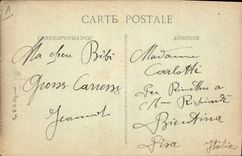 CARTE POSTALE
CORRESPONDANCE
Ma chere Bibi
Gros Caresses
Jeannot
ADRESSE
Madame
Carlotti
Per Rinettu a
Mme Richard
Bientina
Pisa
Italie